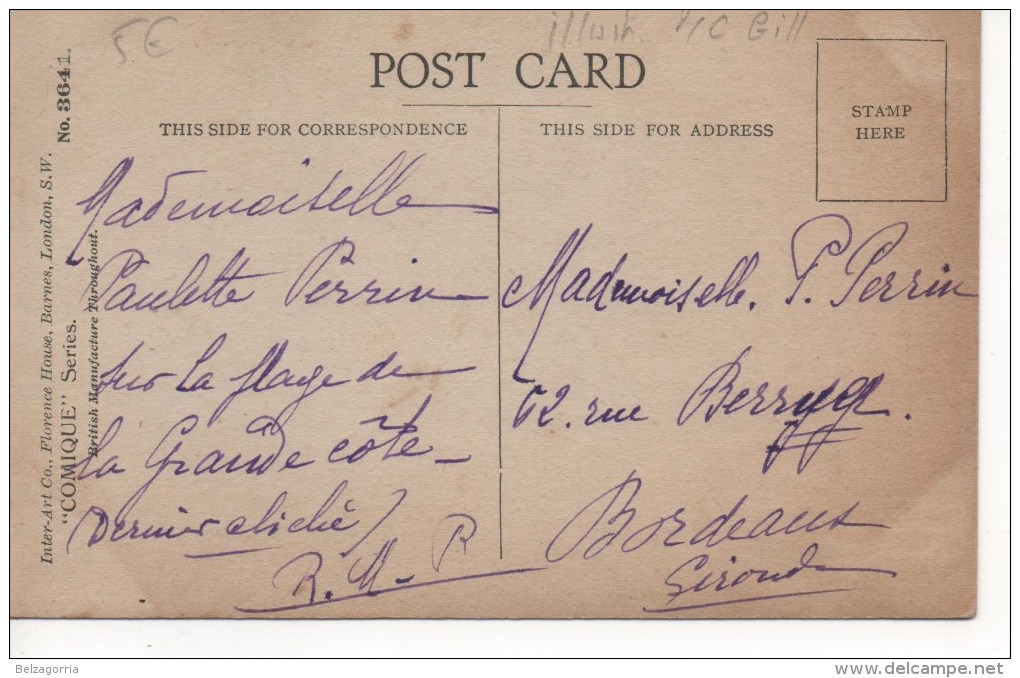 5€
illustr. A C Gill
POST CARD
THIS SIDE FOR CORRESPONDENCE
THIS SIDE FOR ADDRESS
STAMP
HERE
No. 3641.
Inter-Art Co., Florence House, Barnes, London, S.W.
"COMIQUE" Series.
British Manufacture Throughout.
Mademoiselle
Paulette Perrin
sur la plage de
la Grande côte
Dernier cliché)
R. M. R
Mademoiselle. P. Perrin
62. rue
Bordeaux
Gironde
Belzagorria
delcampe.net